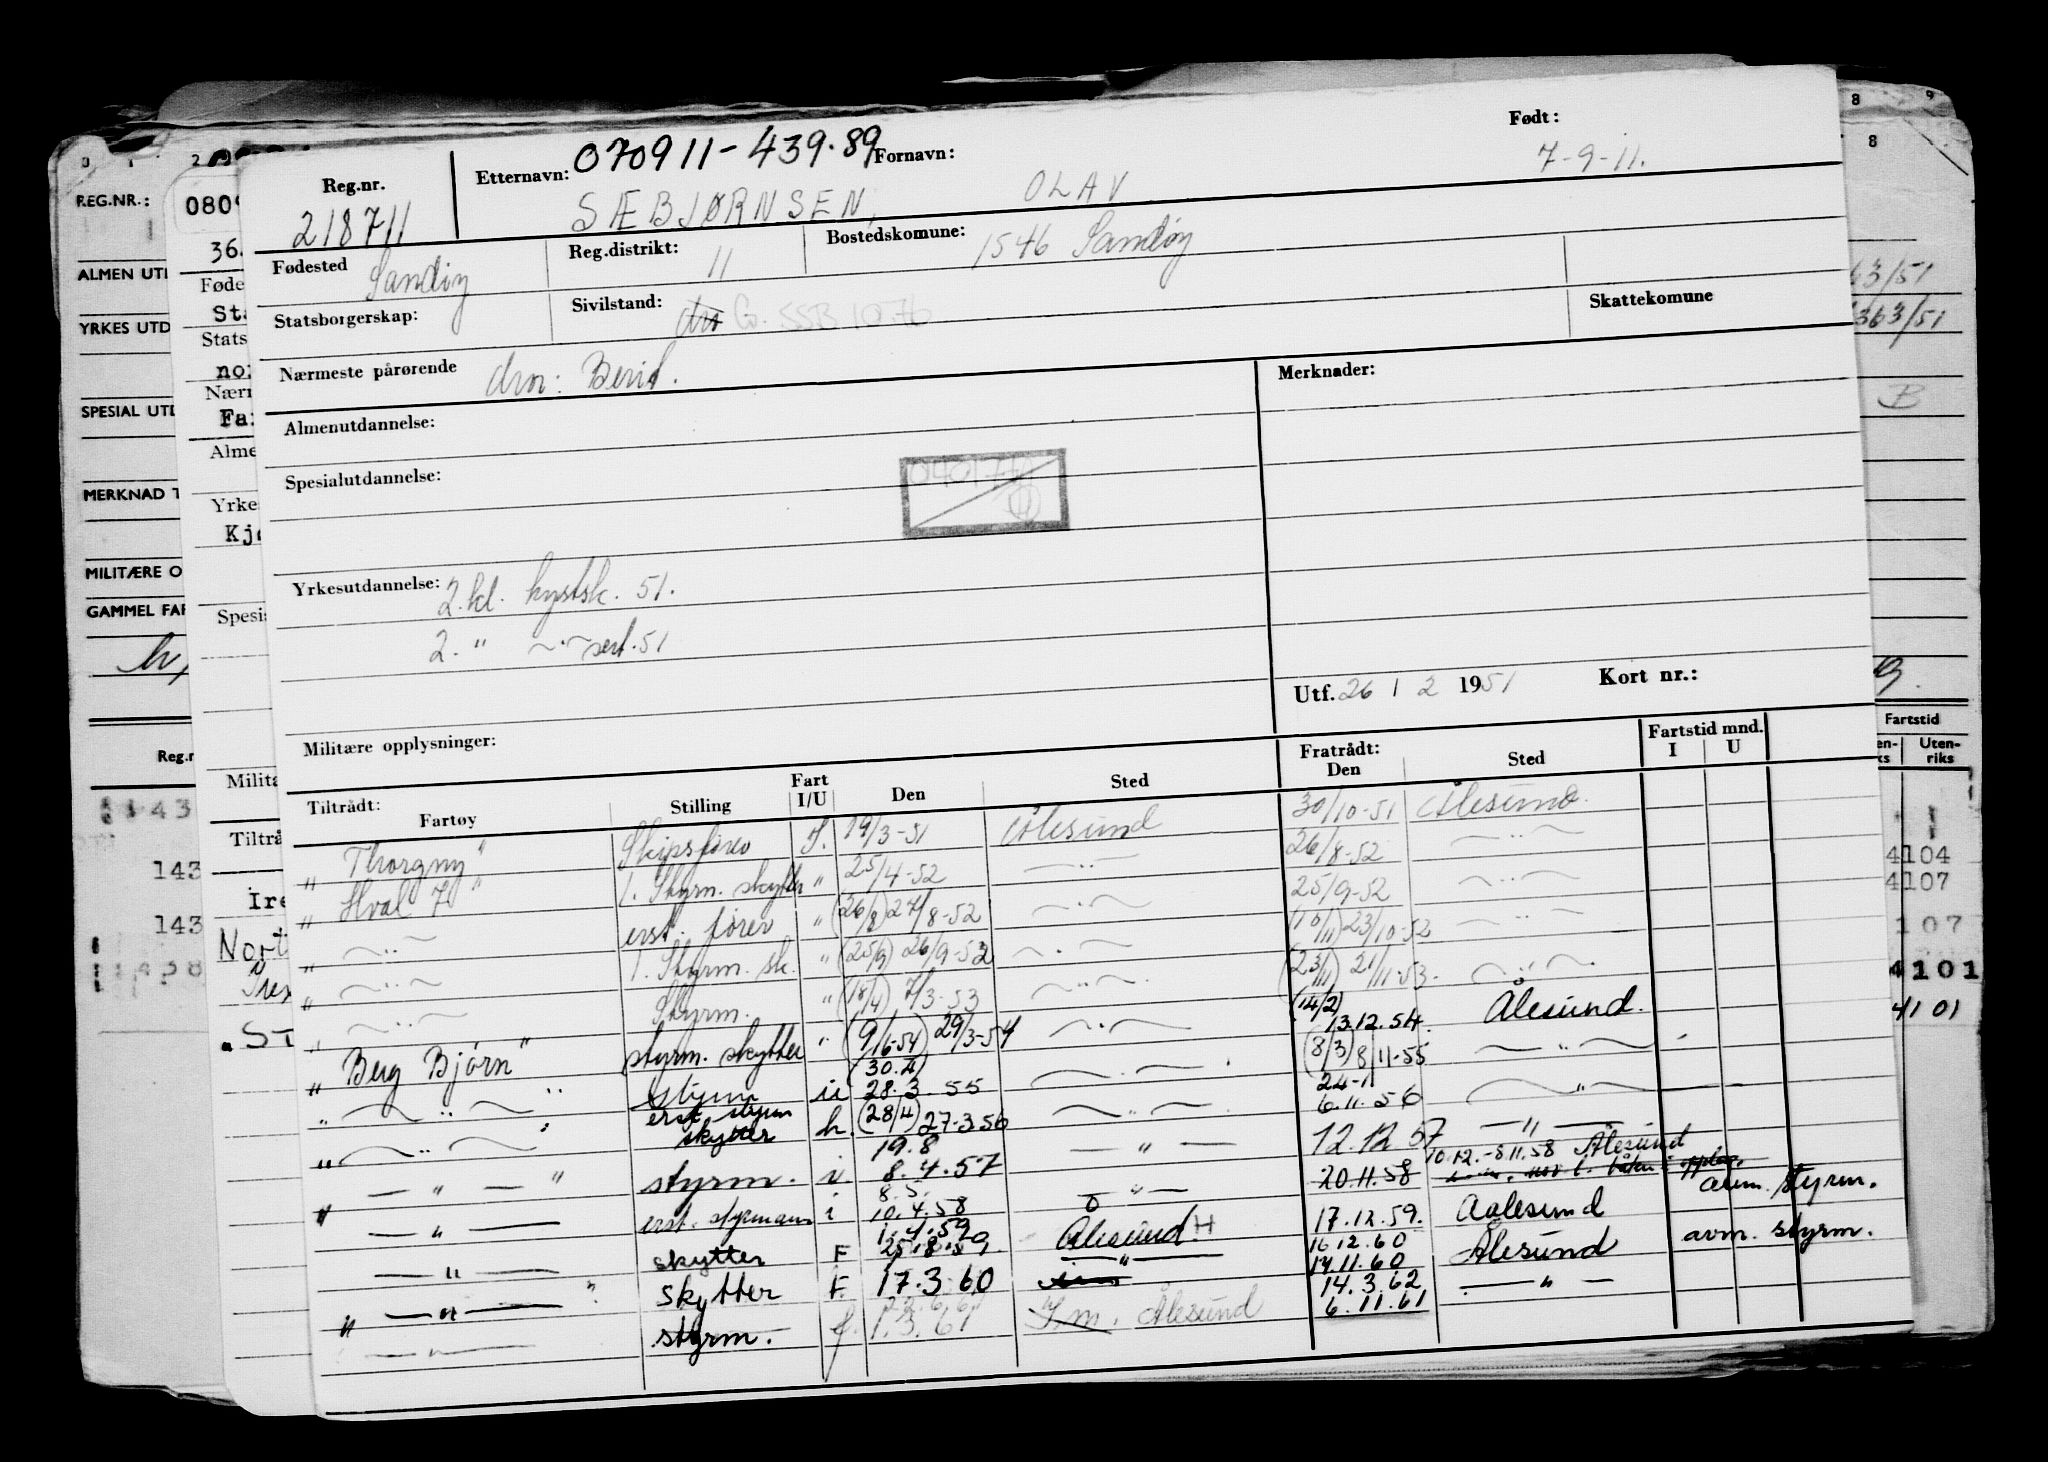 070911-439.89
Reg.nr. 218711
Etternavn: SÆBJØRNSEN,
Fornavn: OLAV
Født: 7-9-11.
Fødested Sandøy
Reg.distrikt: 11
Bostedskomune: 1546 Sandøy
Statsborgerskap:
Sivilstand: G. SSB 10.76
Skattekomune
Nærmeste pårørende
Merknader:
Almenutdannelse:
Spesialutdannelse:
Yrkesutdannelse: 2. kl. kystsk. 51.
2. " sert. 51
Utf. 26 / 2 1951 Kort nr.:
Militære opplysninger:
Tiltrådt: Fartøy Stilling Fart I/U Den Sted Fratrådt: Den Sted Fartstid mnd. I U
"Thorgny" Skipsfører 19/3-51 Ålesund 30/10-51 Ålesund.
"Hval 7" 1. Styrm. skytter " 25/4-52 — " — 26/8-52 — " —
" — " — erst. fører " (26/8) 27/8-52 — " — 25/9-52 — " —
" — " — 1. Styrm. sk. " (25/9) 26/9-52 — " — (10/11) 23/10-52 — " —
" — " — Styrm. " (18/4) 7/3-53 — " — (23/11) 21/11-53. — " —
"Berg Bjørn" styrm. skytter " (9/16-54) 29/3-54 — " — (14/2) 13.12.54. Ålesund.
" — " — " styrm (30.4) 28.3.55 — " — (8/3) 8/11-55 — " —
" — " — erst. styrm skytter h. (28/4) 27.3.56 — " — 24-1 6.11.56 — " —
— " — " styrm. i. 19.8 8.4.57 — " — 12.12.57 — " —
" — " — erst. styrmann i 8.5. 10.4.58 — " — 20.11.58 10.12.-8.11.58 Ålesund
— " — skytter F 1.4.59 25.8.59 Ålesund 17.12.59. Aalesund avm. styrm.
" — " — " skytter F. 17.3.60 — " — 16.12.60 14.11.60 Ålesund avm. styrm.
— " — styrm. f. 1.3.61 Ålesund 14.3.62 6.11.61 — " —
0 1 2
8 9
8
REG.NR.:
ALMEN UTD
YRKES UTD
SPESIAL UTD
MERKNAD T
MILITÆRE O
GAMMEL FAR
Reg.n
143
143
143
1438
0809
36
Føde
Sta
Stats
nor
Nærm
Far
Alme
Yrke
Kjø
Spesia
Milita
Tiltrå
Ire
Nort
ST
63/51
363/51
B
Fartstid
Uten-riks
4104
4107
107
4101
4101